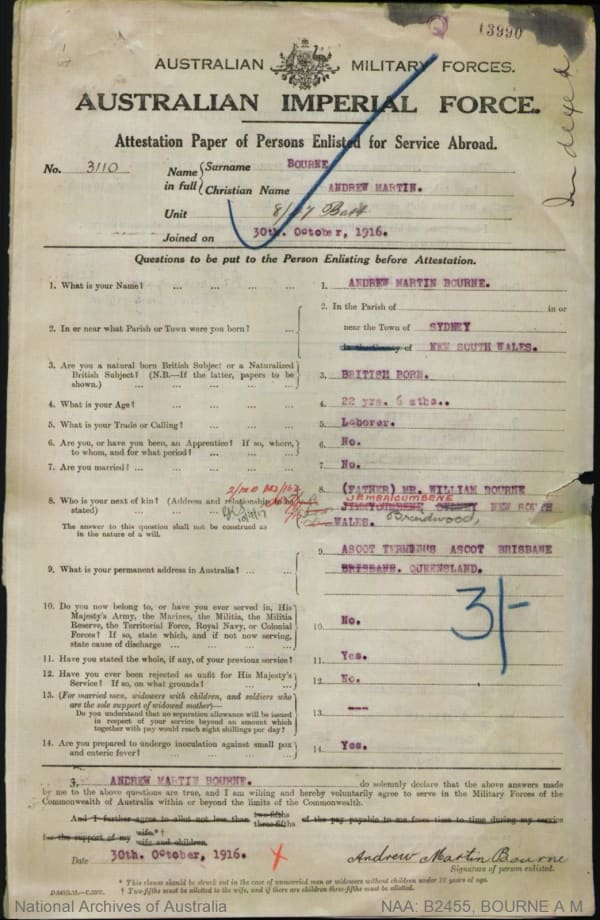 13990
Indexed
AUSTRALIAN MILITARY FORCES.
AUSTRALIAN IMPERIAL FORCE.
Attestation Paper of Persons Enlisted for Service Abroad.
No. 3110
Name in full { Surname BOURNE
Christian Name ANDREW MARTIN.
Unit 8/47 Batt
Joined on 30th. October, 1916.
Questions to be put to the Person Enlisting before Attestation.
1. What is your Name? ... ... ... ... 1. ANDREW MARTIN BOURNE.
2. In or near what Parish or Town were you born? ... 2. In the Parish of in or
near the Town of SYDNEY
in the County of NEW SOUTH WALES.
3. Are you a natural born British Subject or a Naturalized
British Subject? (N.B.—If the latter, papers to be
shown.) ... ... ... ... 3. BRITISH BORN.
4. What is your Age? ... ... ... ... 4. 22 yrs. 6 mths..
5. What is your Trade or Calling? ... ... ... 5. Laborer.
6. Are you, or have you been, an Apprentice? If so, where,
to whom, and for what period? ... ... ... 6. No.
7. Are you married? ... ... ... ... 7. No.
8. Who is your next of kin? (Address and relationship to be
stated)
The answer to this question shall not be construed as
in the nature of a will.
8. (FATHER) MR. WILLIAM BOURNE
JEMBAICUMBENE
SYDNEY NEW SOUTH
WALES. Braidwood,
9. What is your permanent address in Australia? ... 9. ASCOT TERMINUS ASCOT BRISBANE
BRISBANE. QUEENSLAND.
3/-
10. Do you now belong to, or have you ever served in, His
Majesty's Army, the Marines, the Militia, the Militia
Reserve, the Territorial Force, Royal Navy, or Colonial
Forces? If so, state which, and if not now serving,
state cause of discharge ... ... ... 10. No.
11. Have you stated the whole, if any, of your previous service? 11. Yes.
12. Have you ever been rejected as unfit for His Majesty's
Service? If so, on what grounds? ... ... 12. No.
13. (For married men, widowers with children, and soldiers who
are the sole support of widowed mother)—
Do you understand that no separation allowance will be issued
in respect of your service beyond an amount which
together with pay would reach eight shillings per day?
13. ---
14. Are you prepared to undergo inoculation against small pox
and enteric fever? ... ... ... ... 14. Yes.
I, ANDREW MARTIN BOURNE. do solemnly declare that the above answers made
by me to the above questions are true, and I am willing and hereby voluntarily agree to serve in the Military Forces of the
Commonwealth of Australia within or beyond the limits of the Commonwealth.
And I further agree to allot not less than two-fifths three-fifths of the pay payable to me from time to time during my service
for the support of my wife.*† wife and children.
Date 30th. October, 1916. X Andrew Martin Bourne
Signature of person enlisted.
* This clause should be struck out in the case of unmarried men or widowers without children under 18 years of age.
† Two-fifths must be allotted to the wife, and if there are children three-fifths must be allotted.
National Archives of Australia
NAA: B2455, BOURNE A M